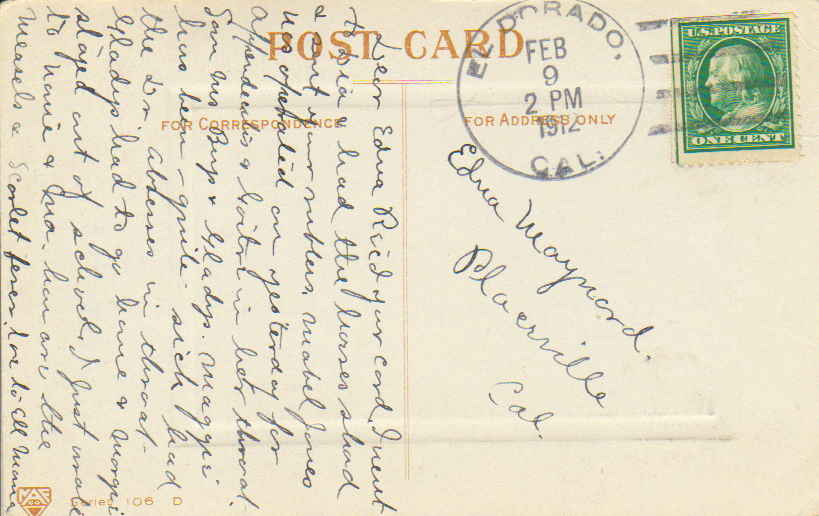 POST CARD
FOR CORRESPONDENCE
FOR ADDRESS ONLY
EL DORADO,
FEB
9
2 PM
1912
CAL.
U.S. POSTAGE
ONE CENT
Edna Maynard.
Placerville
Cal.
Dear Edna Rec'd your card, I went
to & had the horses shod
& sent your Mabel Jones
was operated on yesterday for
appendecitis & goitre in her throat.
Sam Mc & Gladys. Maggie
has been quite sick had
the Dr. absesses in throat.
Gladys had to go home &
stayed out of school, I just
to & Ma. how are the
measels & Scarlet fever. love to all Mama
Series 106 D